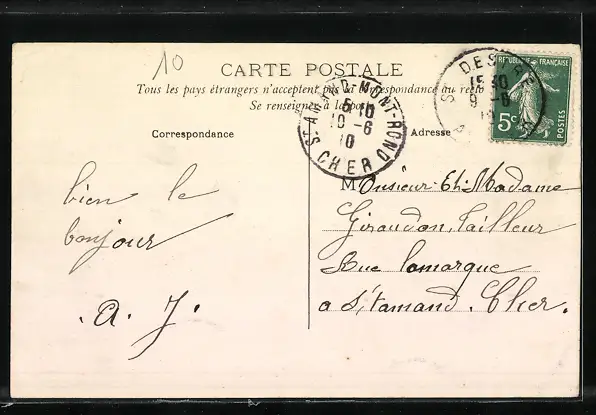 10
CARTE POSTALE
Tous les pays étrangers n'acceptent pas la correspondance au recto
Se renseigner à la poste
Correspondance
Adresse
ST-AMAND-MONT-ROND
5 10
10 -6
10
CHER
15 30
9 -6
10
RÉPUBLIQUE FRANÇAISE
5c
POSTES
bien le
bonjour
A. J.
Monsieur et Madame
Giraudon, tailleur
Rue Lamarque
a St Amand. Cher.